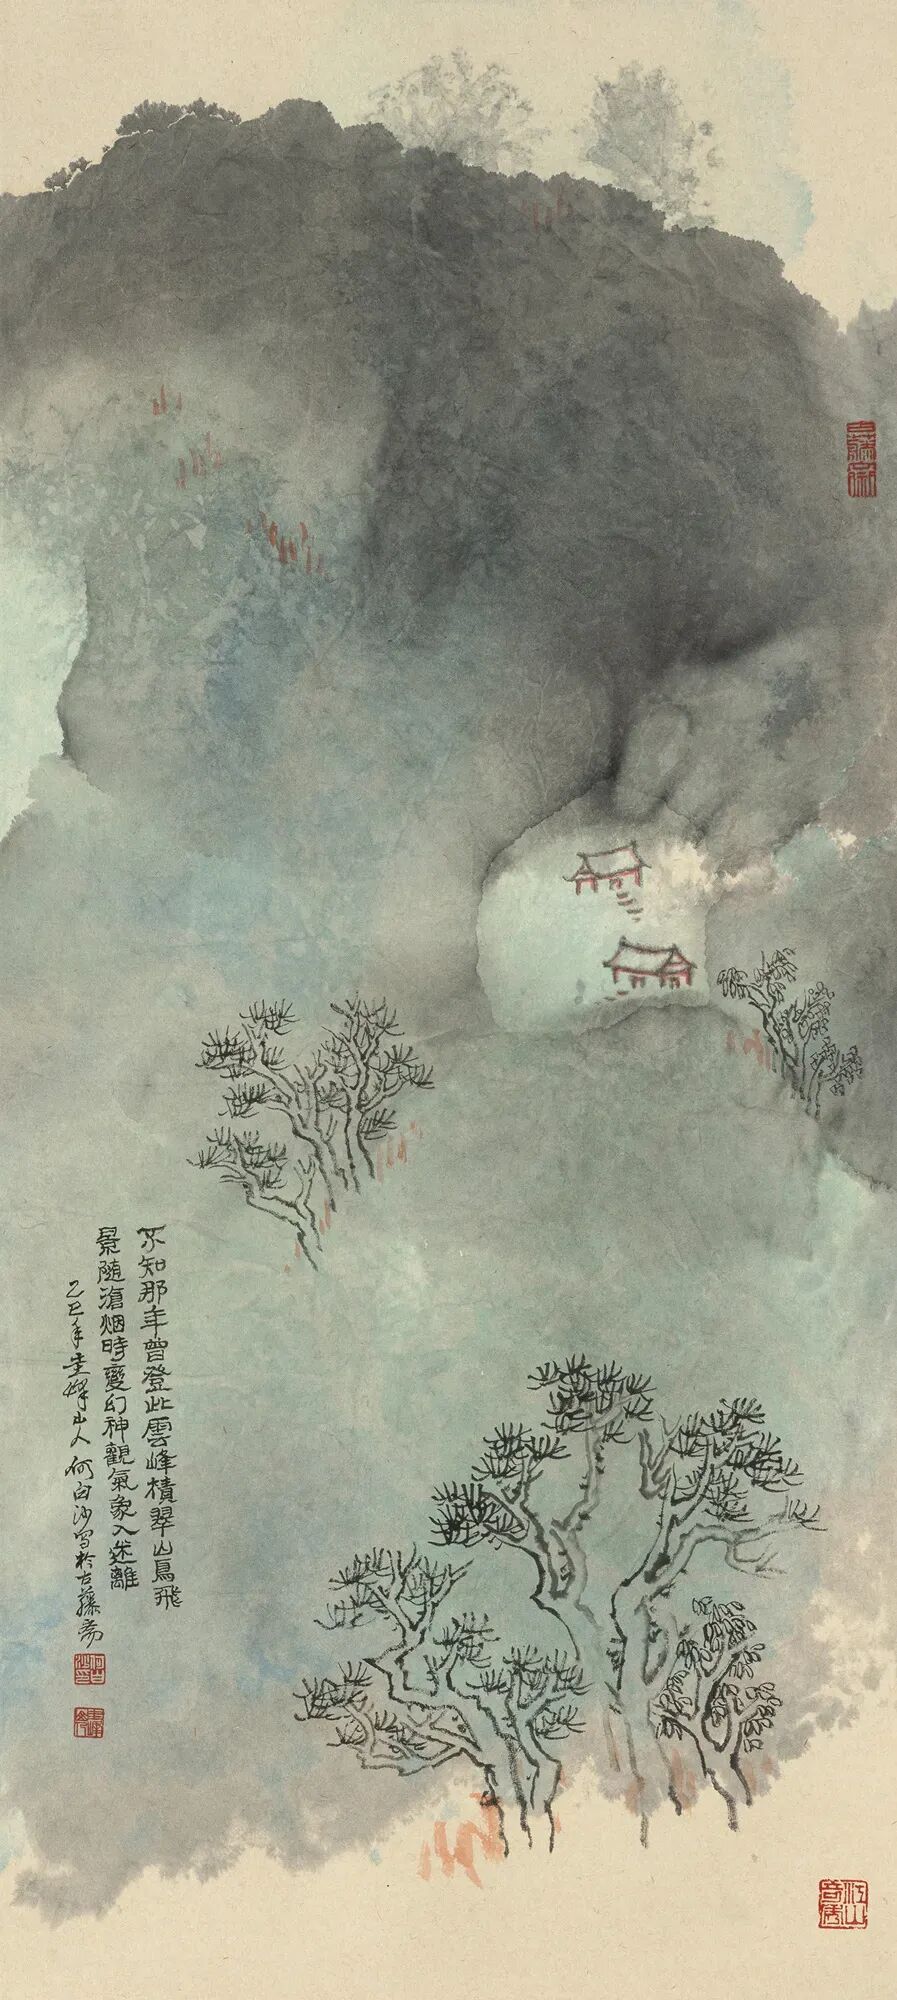 不知那年曾登此雲峰積翠山鳥飛
景随滄烟時變幻神觀氣象入迷離
乙巳年圭峰山人何白沙写於古藤斋